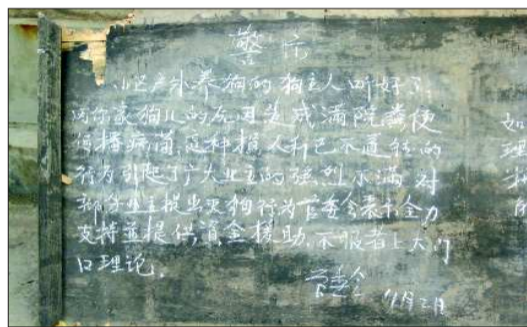 警示
小区户外养狗的狗主人听好了,
因你家狗儿的原因造成满院粪便
传播病菌,这种损人利己不道德的
行为引起了广大业主的强烈不满对
部分业主提出灭狗行为管委会表示全力
支持并提供资金援助,不服者上大门
口理论。
管委会
11月2日
处
理